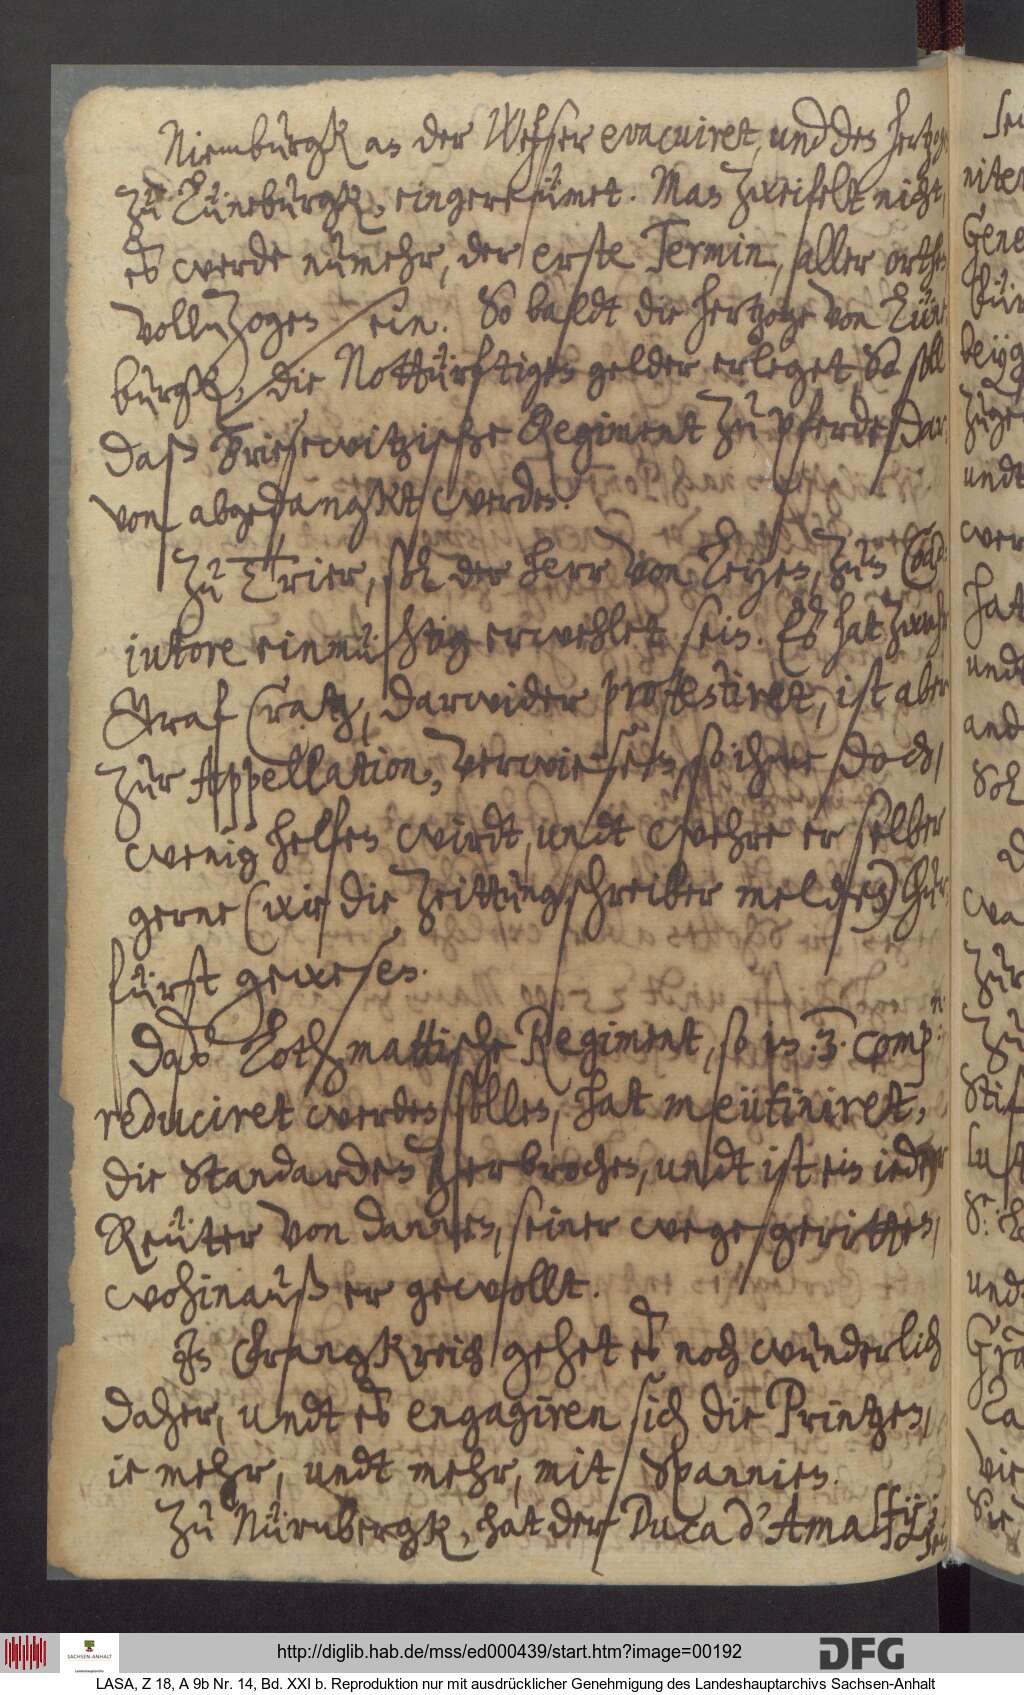 Niemburgk an der Wehser evacuiret, und den hertzogen
zu Lüneburgk, eingereümet. Man zweifelt nicht,
es werde nuhmehr, der erste Termin, aller orthen
vollnzogen sein. So baldt die hertzoge von Lüne¬
burgk, die Notturftigen gelder erleget, So soll
daß Priesewitzische Regiment zu pferde, dar¬
von abgedangkt werden.
Zu Trier, soll der herr von Leyen, zum Coad¬
jutore einmühtig erwehlet sein. Es hat zwahr
Graf Cratz, darwider protestiret, ist aber
zur Appellation, verwiesen, so ihme doch,
wenig helfen wirdt, undt wehre er selber
gerne (wie die Zeittungschreiber melden) Chur¬
fürst gewesen.
Das Lothmattische Regiment, so in 3 comp.n:
reduciret werden sollen, hat meutiniret,
die Standarden zerbrochen, undt ist ein ieder
Reüter von dannen, seiner wege geritten,
wohinauß er gewollt.
In Frangkreich gehet es noch wunderlich
daher, undt es engagiren sich die Printzen,
ie mehr, undt mehr, mit Spannien.
Zu Nürnbergk, hat der Duca d'Amalfy,
http://diglib.hab.de/mss/ed000439/start.htm?image=00192
DFG
SACHSEN-ANHALT
LASA, Z 18, A 9b Nr. 14, Bd. XXI b. Reproduktion nur mit ausdrücklicher Genehmigung des Landeshauptarchivs Sachsen-Anhalt